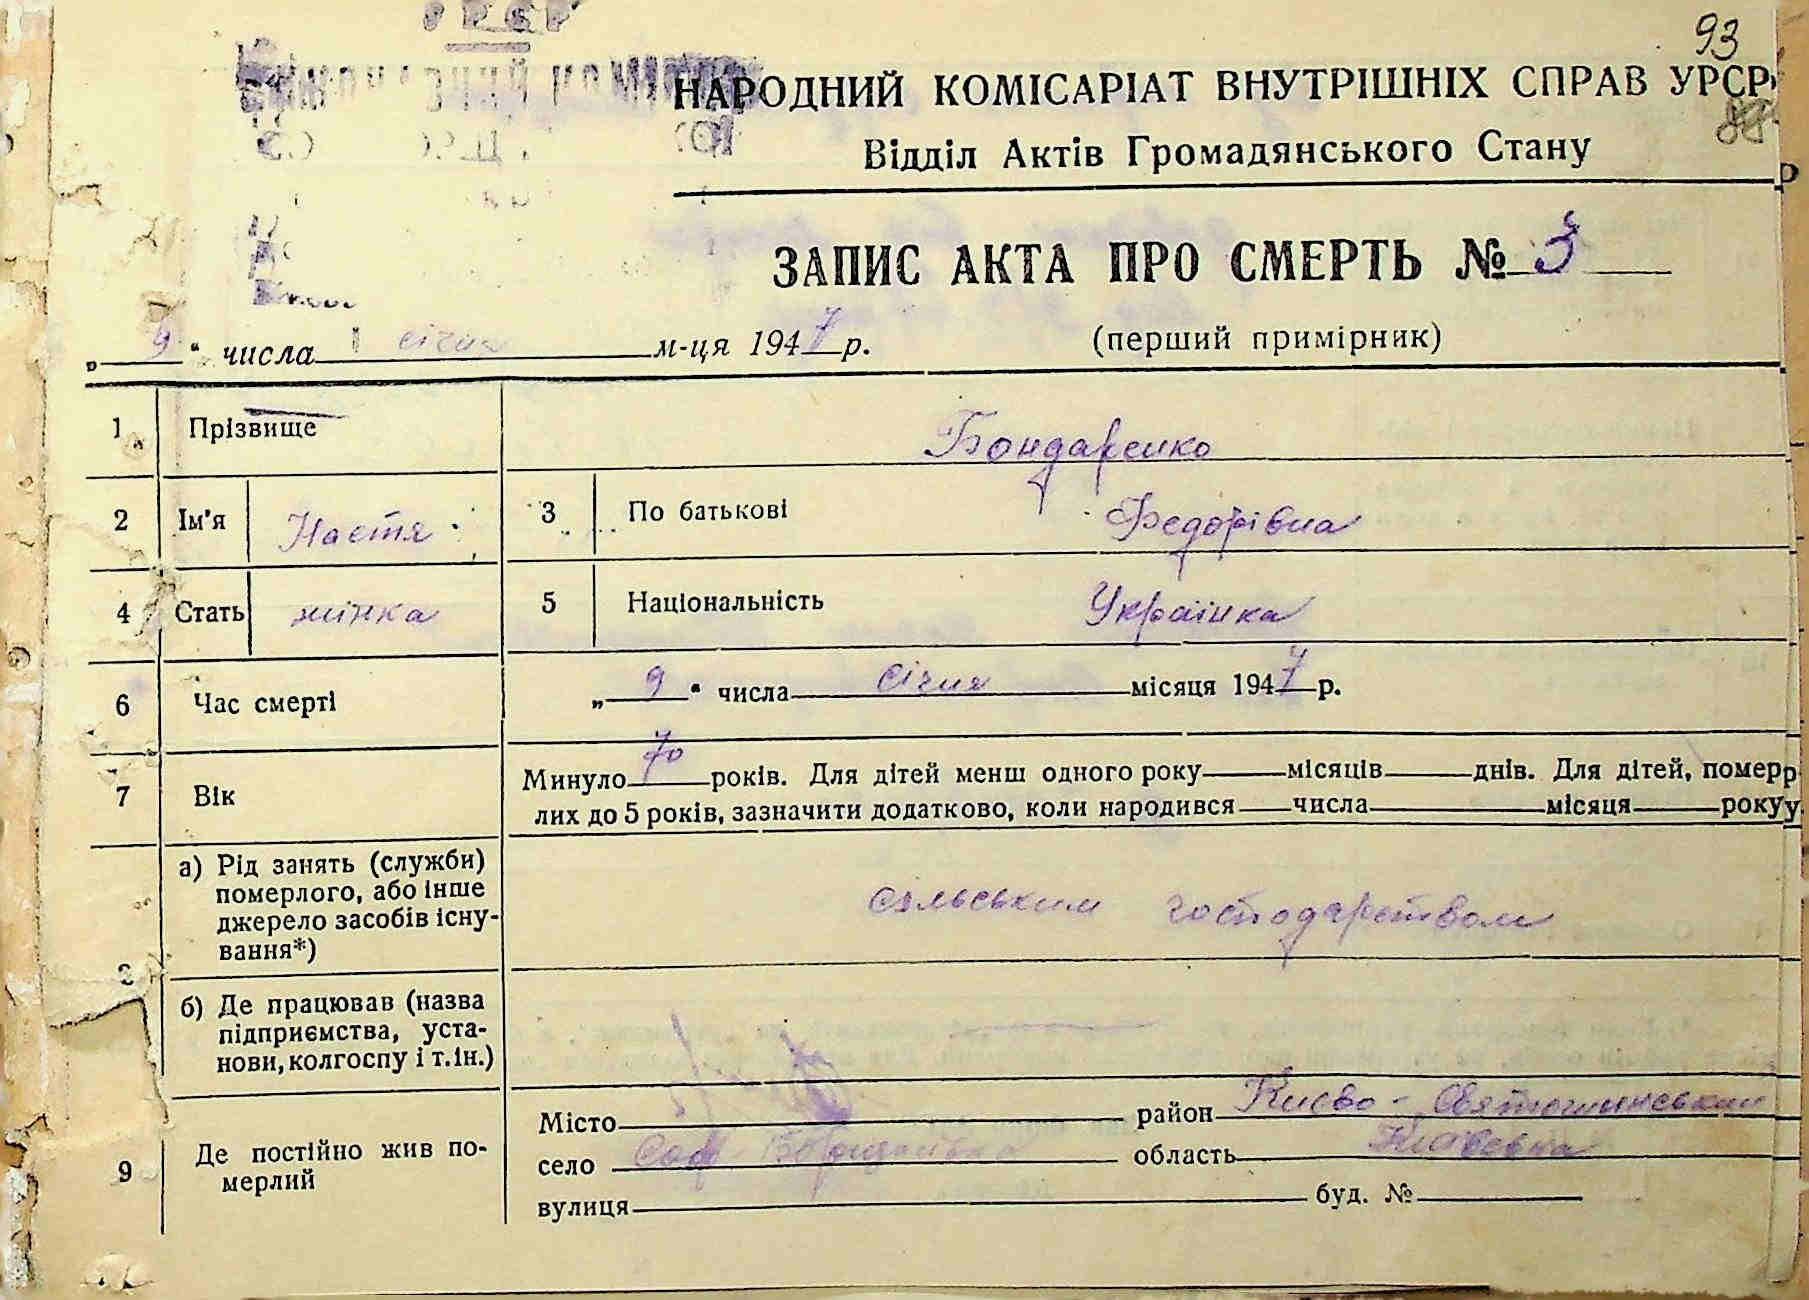 93
НАРОДНИЙ КОМІСАРІАТ ВНУТРІШНІХ СПРАВ УРСР
Відділ Актів Громадянського Стану
ЗАПИС АКТА ПРО СМЕРТЬ № 3
„ 9 “ числа січня м-ця 1947 р. (перший примірник)
1 Прізвище Бондаренко
2 Ім'я Настя 3 По батькові Федорівна
4 Стать жінка 5 Національність Українка
6 Час смерті „ 9 “ числа січня місяця 1947 р.
7 Вік Минуло 70 років. Для дітей менш одного року місяців днів. Для дітей, помер
лих до 5 років, зазначити додатково, коли народився числа місяця року
а) Рід занять (служби)
померлого, або інше
джерело засобів існу-
вання*)
сільським господарством
б) Де працював (назва
підприємства, уста-
нови, колгоспу і т.ін.)
9 Де постійно жив по-
мерлий
Місто район Києво-Святошинський
село Соф-Борщагівка область Київська
вулиця буд. №